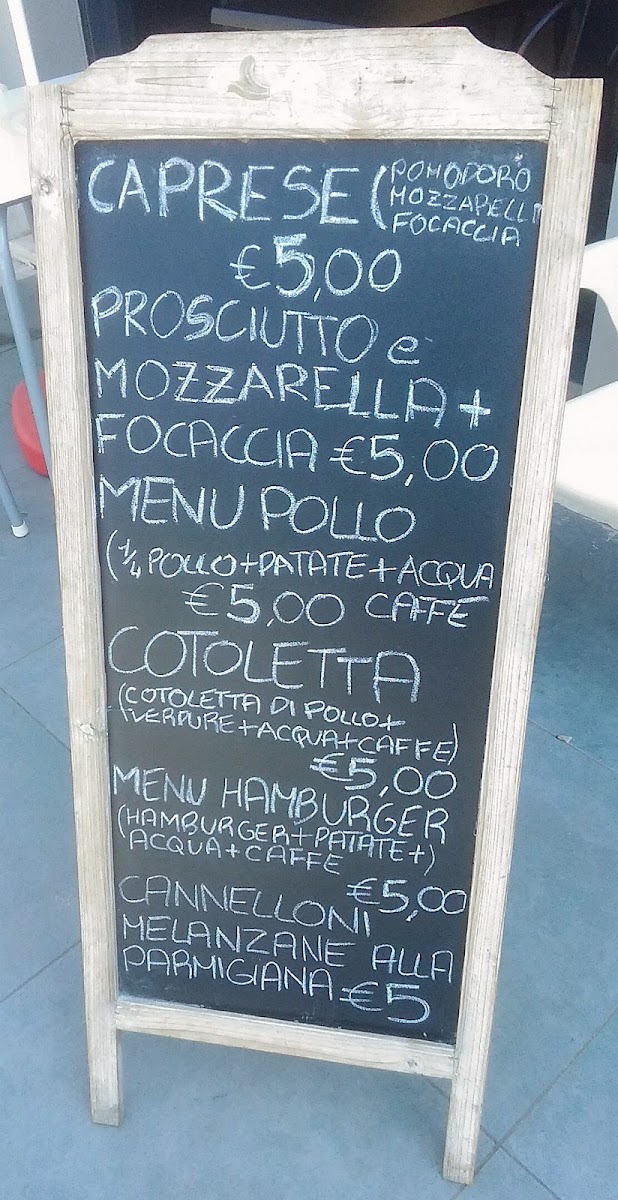 CAPRESE (POMODORO
MOZZARELLA
FOCACCIA
€5,00
PROSCIUTTO e
MOZZARELLA +
FOCACCIA €5,00
MENU POLLO
(1/4 POLLO+PATATE+ACQUA
€5,00 CAFFE
COTOLETTA
(COTOLETTA DI POLLO+
VERDURE+ACQUA+CAFFE)
€5,00
MENU HAMBURGER
(HAMBURGER+PATATE+)
ACQUA+CAFFE
€5,00
CANNELLONI
MELANZANE ALLA
PARMIGIANA €5